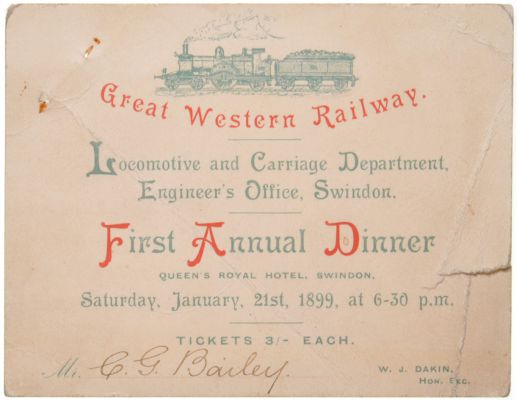 Great Western Railway.
Locomotive and Carriage Department,
Engineer's Office, Swindon.
First Annual Dinner
QUEEN'S ROYAL HOTEL, SWINDON,
Saturday, January, 21st, 1899, at 6-30 p.m.
TICKETS 3/- EACH.
Mr. C. G. Bailey.
W. J. DAKIN,
HON. SEC.